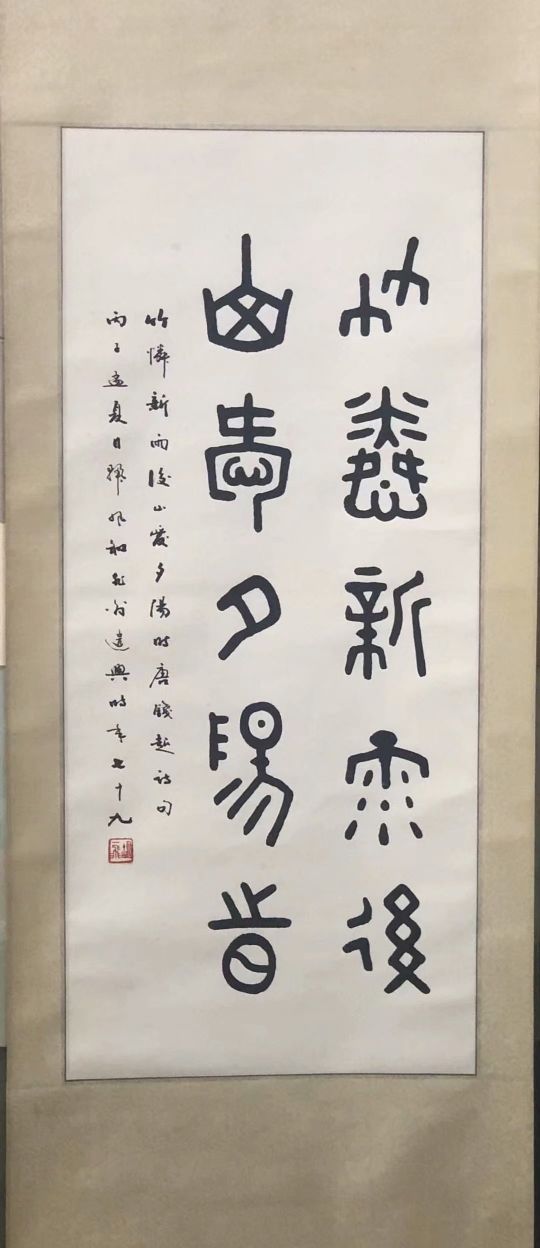 竹憐新雨後
山愛夕陽時
竹憐新雨後山愛夕陽時唐錢起詩句
丙子孟夏日 風和 翁遣興時年七十九